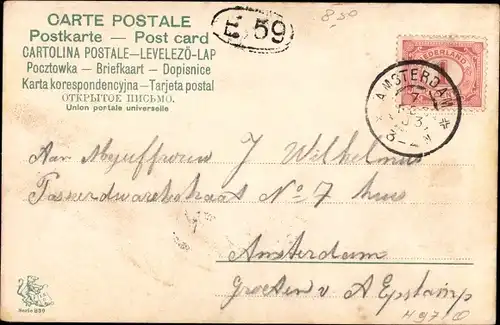 CARTE POSTALE
Postkarte — Post card
CARTOLINA POSTALE—LEVELEZŐ-LAP
Pocztowka — Briefkaart — Dopisnice
Karta korespondencyjna — Tarjeta postal
ОТКРЫТОЕ ПИСЬМО.
Union portale universelle
59
8-50
NEDERLAND
AMSTERDAM
Aan Mejuffrouw J Wilhelmus
No 7 huis
Amsterdam
Groeten v A Epskamp
Serie 899